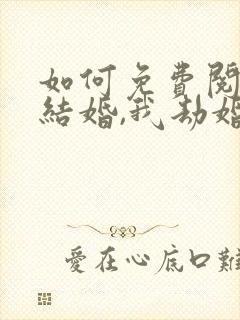 如何免費閱
結婚,我劫婚
愛在心底口難